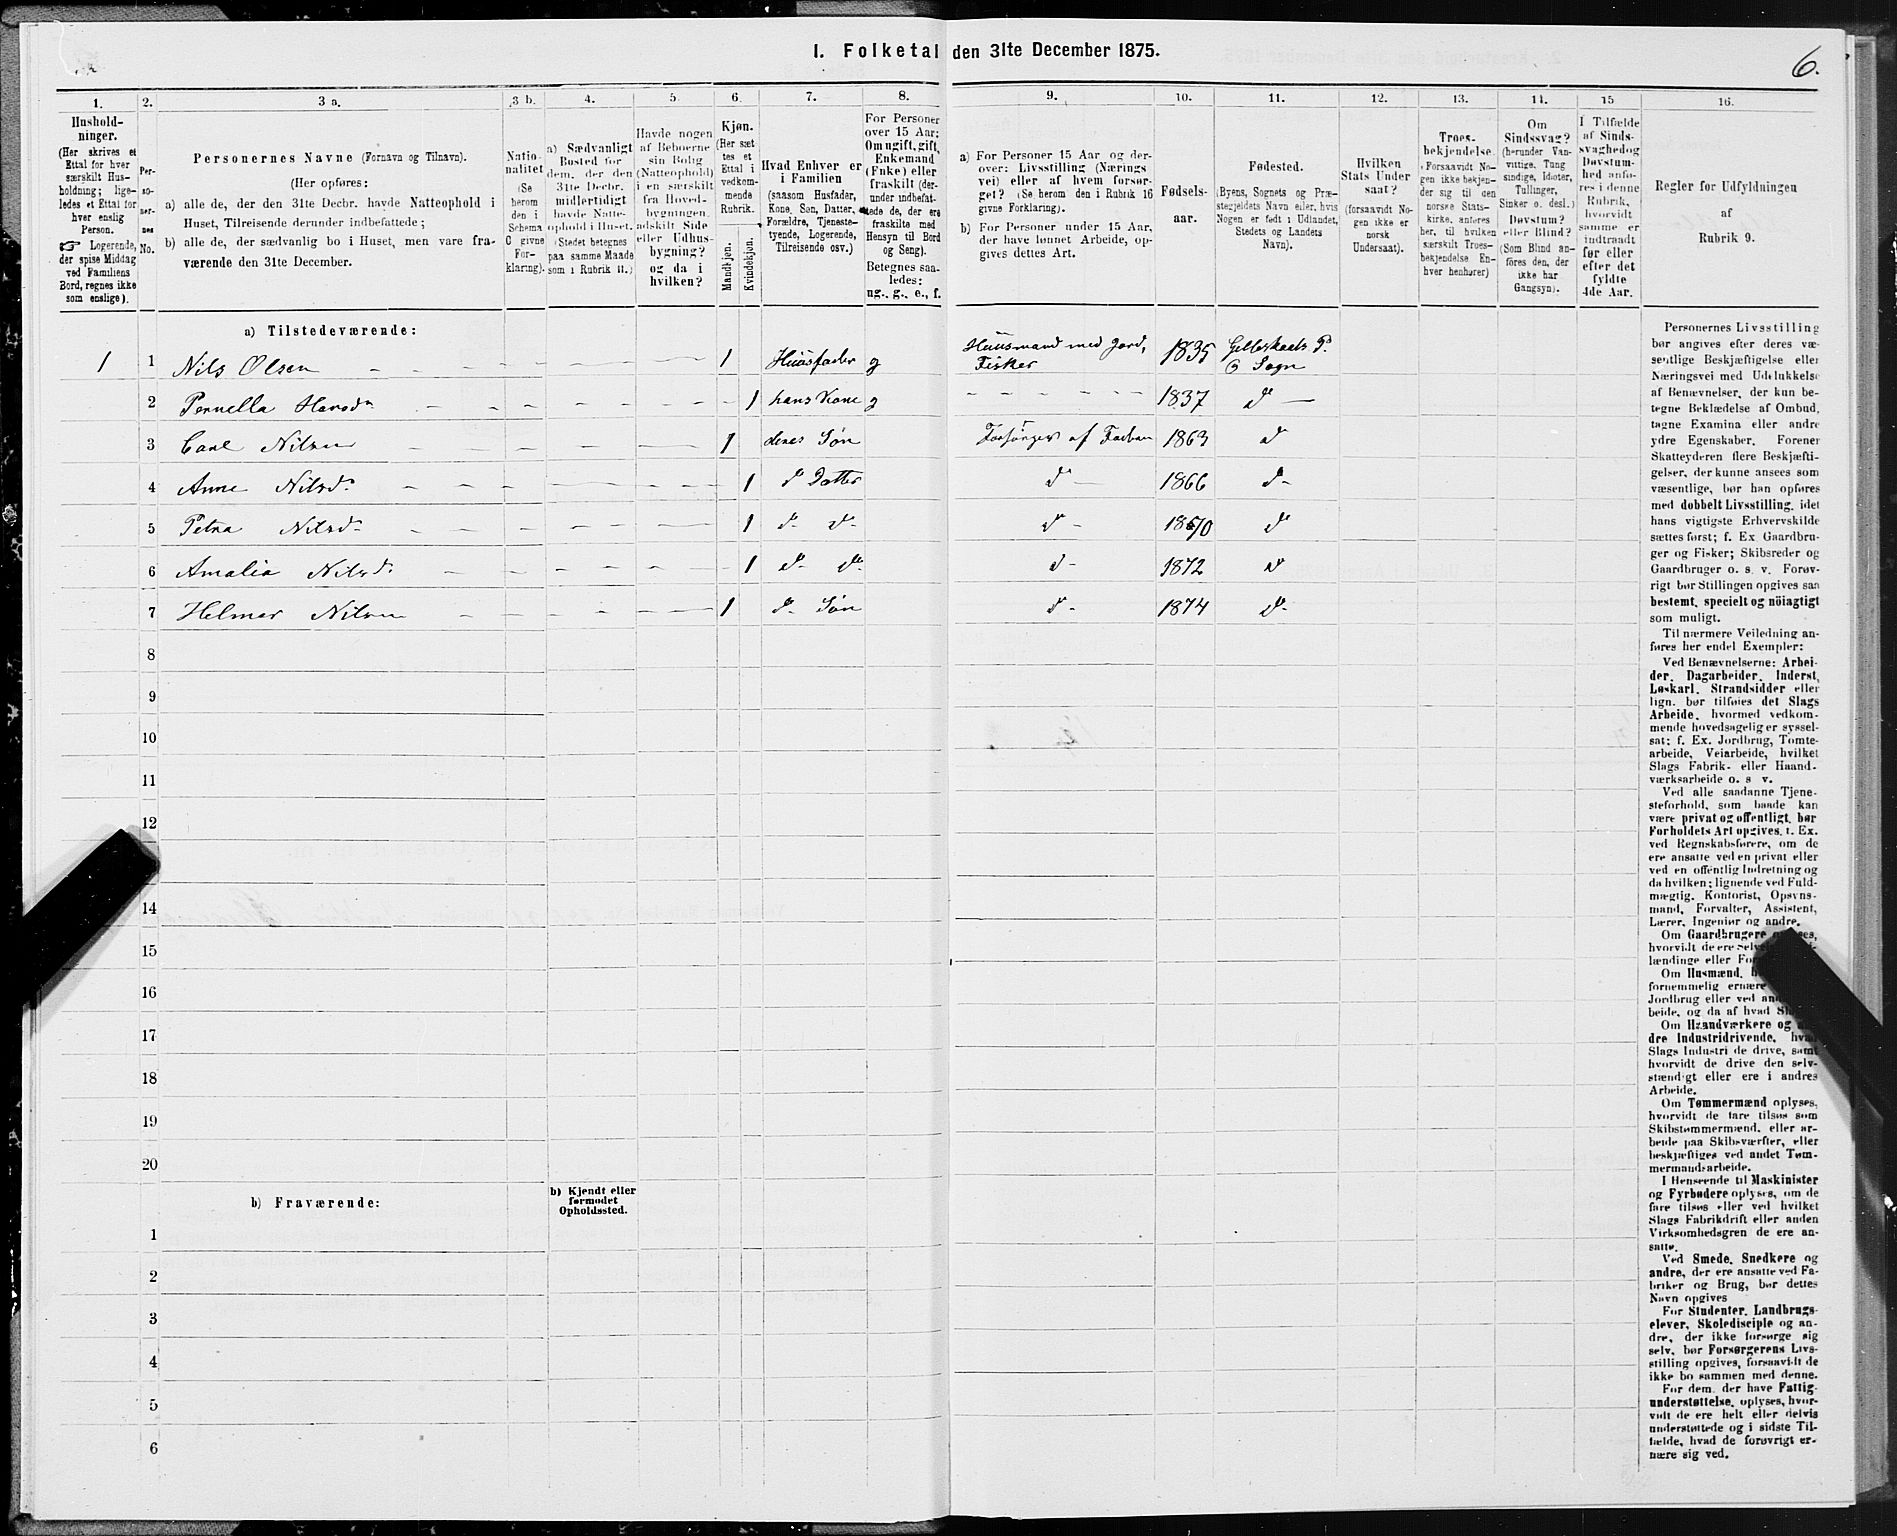 I. Folketal den 31te December 1875.
6.
1.
Hushold-
ninger.
(Her skrives et
Ettal for hver
særskilt Hus-
holdning; lige-
ledes et Ettal for
hver enslig
Person.
☞ Logerende,
der spise Middag
ved Familiens
Bord, regnes ikke
som enslige).
2.
Per-
so-
ner-
nes
No.
3 a.
Personernes Navne (Fornavn og Tilnavn).
(Her opføres:
a) alle de, der den 31te Decbr. havde Natteophold i
Huset, Tilreisende derunder indbefattede;
b) alle de, der sædvanlig bo i Huset, men vare fra-
værende den 31te December.
3 b.
Natio-
nalitet
(Se
herom
den i
Schema
C givne
For-
klaring).
4.
a) Sædvanligt
Bosted for
dem, der den
31te Decbr.
midlertidigt
havde Natte-
ophold i Huset.
(Stedet betegnes
paa samme Maade
som i Rubrik 11.)
5.
Havde nogen
af Beboerne
sin Bolig
(Natteophold)
i en særskilt
fra Hoved-
bygningen
adskilt Side
eller Udhus-
bygning?
og da i
hvilken?
6.
Kjøn.
(Her sæt
tes et
Ettal i
vedkom-
mende
Rubrik.
Mandkjøn.
Kvindekjøn.
7.
Hvad Enhver er
i Familien
(saasom Husfader,
Kone, Søn, Datter,
Forældre, Tjeneste-
tyende, Logerende,
Tilreisende osv.)
8.
For Personer
over 15 Aar:
Om ugift, gift,
Enkemand
(Enke) eller
fraskilt (der-
under indbefat-
tede de, der ere
fraskilte med
Hensyn til Bord
og Seng).
Betegnes saa-
ledes:
ug., g., e., f.
9.
a) For Personer 15 Aar og der-
over: Livsstilling (Nærings
vei) eller af hvem forsør-
get? (Se herom den i Rubrik 16
givne Forklaring).
b) For Personer under 15 Aar,
der have lønnet Arbeide, op-
gives dettes Art.
10.
Fødsels-
aar.
11.
Fødested.
(Byens, Sognets og Præ-
stegjeldets Navn eller, hvis
Nogen er født i Udlandet,
Stedets og Landets
Navn).
12.
Hvilken
Stats Under
saat?
(forsaavidt No-
gen ikke er
norsk
Undersaat).
13.
Troes-
bekjendelse.
(Forsaavidt No-
gen ikke bekjen-
der sig til den
norske Stats-
kirke, anføres
her, til hvilken
særskilt Troes-
bekjendelse En-
hver henhører)
14.
Om
Sindssvag?
(herunder Van-
vittige, Tung
sindige, Idioter,
Tullinger,
Sinker o. desl.)
Døvstum?
eller Blind?
(Som Blind an-
føres den, der
ikke har
Gangsyn).
15
I Tilfælde
af Sinds-
svaghed og
Døvstum-
hed anfø-
res i denne
Rubrik,
hvorvidt
samme er
indtraadt
før eller
efter det
fyldte
4de Aar.
16.
Regler for Udfyldningen
af
Rubrik 9.
a) Tilstedeværende:
1 1 Nils Olsen 1 Huusfader g Huusmand med Jord, 1835 Gildeskaals P.
Fisker & Sogn
2 Pernella Hansd. 1 hans Kone g 1837 d
3 Carl Nilsen 1 deres Søn Forsörges af Faderen 1863 d
4 Anne Nilsd. 1 d Datter d 1866 d
5 Petra Nilsd. 1 d d d 1870 d
6 Amalia Nilsd. 1 d d d 1872 d
7 Helmer Nilsen 1 d Søn d 1874 d
8
9
10
11
12
14
15
16
17
18
19
20
b) Fraværende:
b) Kjendt eller
formodet
Opholdssted.
1
2
3
4
5
6
Personernes Livsstilling
bør angives efter deres væ-
sentlige Beskjæftigelse eller
Næringsvei med Udelukkelse
af Benævnelser, der kun be-
tegne Beklædelse af Ombud,
tagne Examina eller andre
ydre Egenskaber. Forener
Skatteyderen flere Beskjæfti-
gelser, der kunne ansees som
væsentlige, bør han opføres
med dobbelt Livsstilling, idet
hans vigtigste Erhvervskilde
sættes først; f. Ex Gaardbru-
ger og Fisker; Skibsreder og
Gaardbruger o. s. v. Forøv-
rigt bør Stillingen opgives saa
bestemt, specielt og nöiagtigt
som muligt.
Til nærmere Veiledning an-
føres her endel Exempler:
Ved Benævnelserne: Arbei-
der, Dagarbeider, Inderst,
Løskarl, Strandsidder eller
lign. bør tilføies det Slags
Arbeide, hvormed vedkom-
mende hovedsagelig er syssel-
sat; f. Ex. Jordbrug, Tomte-
arbeide, Veiarbeide, hvilket
Slags Fabrik- eller Haand-
værksarbeide o. s v.
Ved alle saadanne Tjene-
steforhold, som baade kan
være privat og offentligt, bør
Forholdets Art opgives, t. Ex.
ved Regnskabsførere, om de
ere ansatte ved en privat eller
ved en offentlig Indretning og
da hvilken; lignende ved Fuld-
mægtig, Kontorist, Opsyns-
mand, Forvalter, Assistent,
Lærer, Ingeniør og andre.
Om Gaardbrugere
hvorvidt de ere
lændinge eller
Om Husmænd,
fornemmelig ernære
Jordbrug eller ved
beide, og da af hvad
Om Haandværkere og
dre Industridrivende, hvad
Slags Industri de drive, samt
hvorvidt de drive den selv-
stændigt eller ere i andres
Arbeide.
Om Tømmermænd oplyses,
hvorvidt de fare tilsøs som
Skibstømmermænd, eller ar-
beide paa Skibsværfter, eller
beskjæftiges ved andet Tøm-
mermandsarbeide.
I Henseende til Maskinister
og Fyrbødere oplyses, om de
fare tilsøs eller ved hvilket
Slags Fabrikdrift eller anden
Virksomhedsgren de ere an-
satte.
Ved Smede, Snedkere og
andre, der ere ansatte ved Fa-
briker og Brug, bør dettes
Navn opgives
For Studenter, Landbrugs-
elever, Skoledisciple og an-
dre, der ikke forsørge sig
selv, bør Forsørgerens Livs-
stilling opgives, forsaavidt de
ikke bo sammen med denne.
For dem, der have Fattig-
understøttelse, oplyses, hvor-
vidt de ere helt eller delvis
understøttede og i sidste Til-
fælde, hvad de forøvrigt er-
nære sig ved.